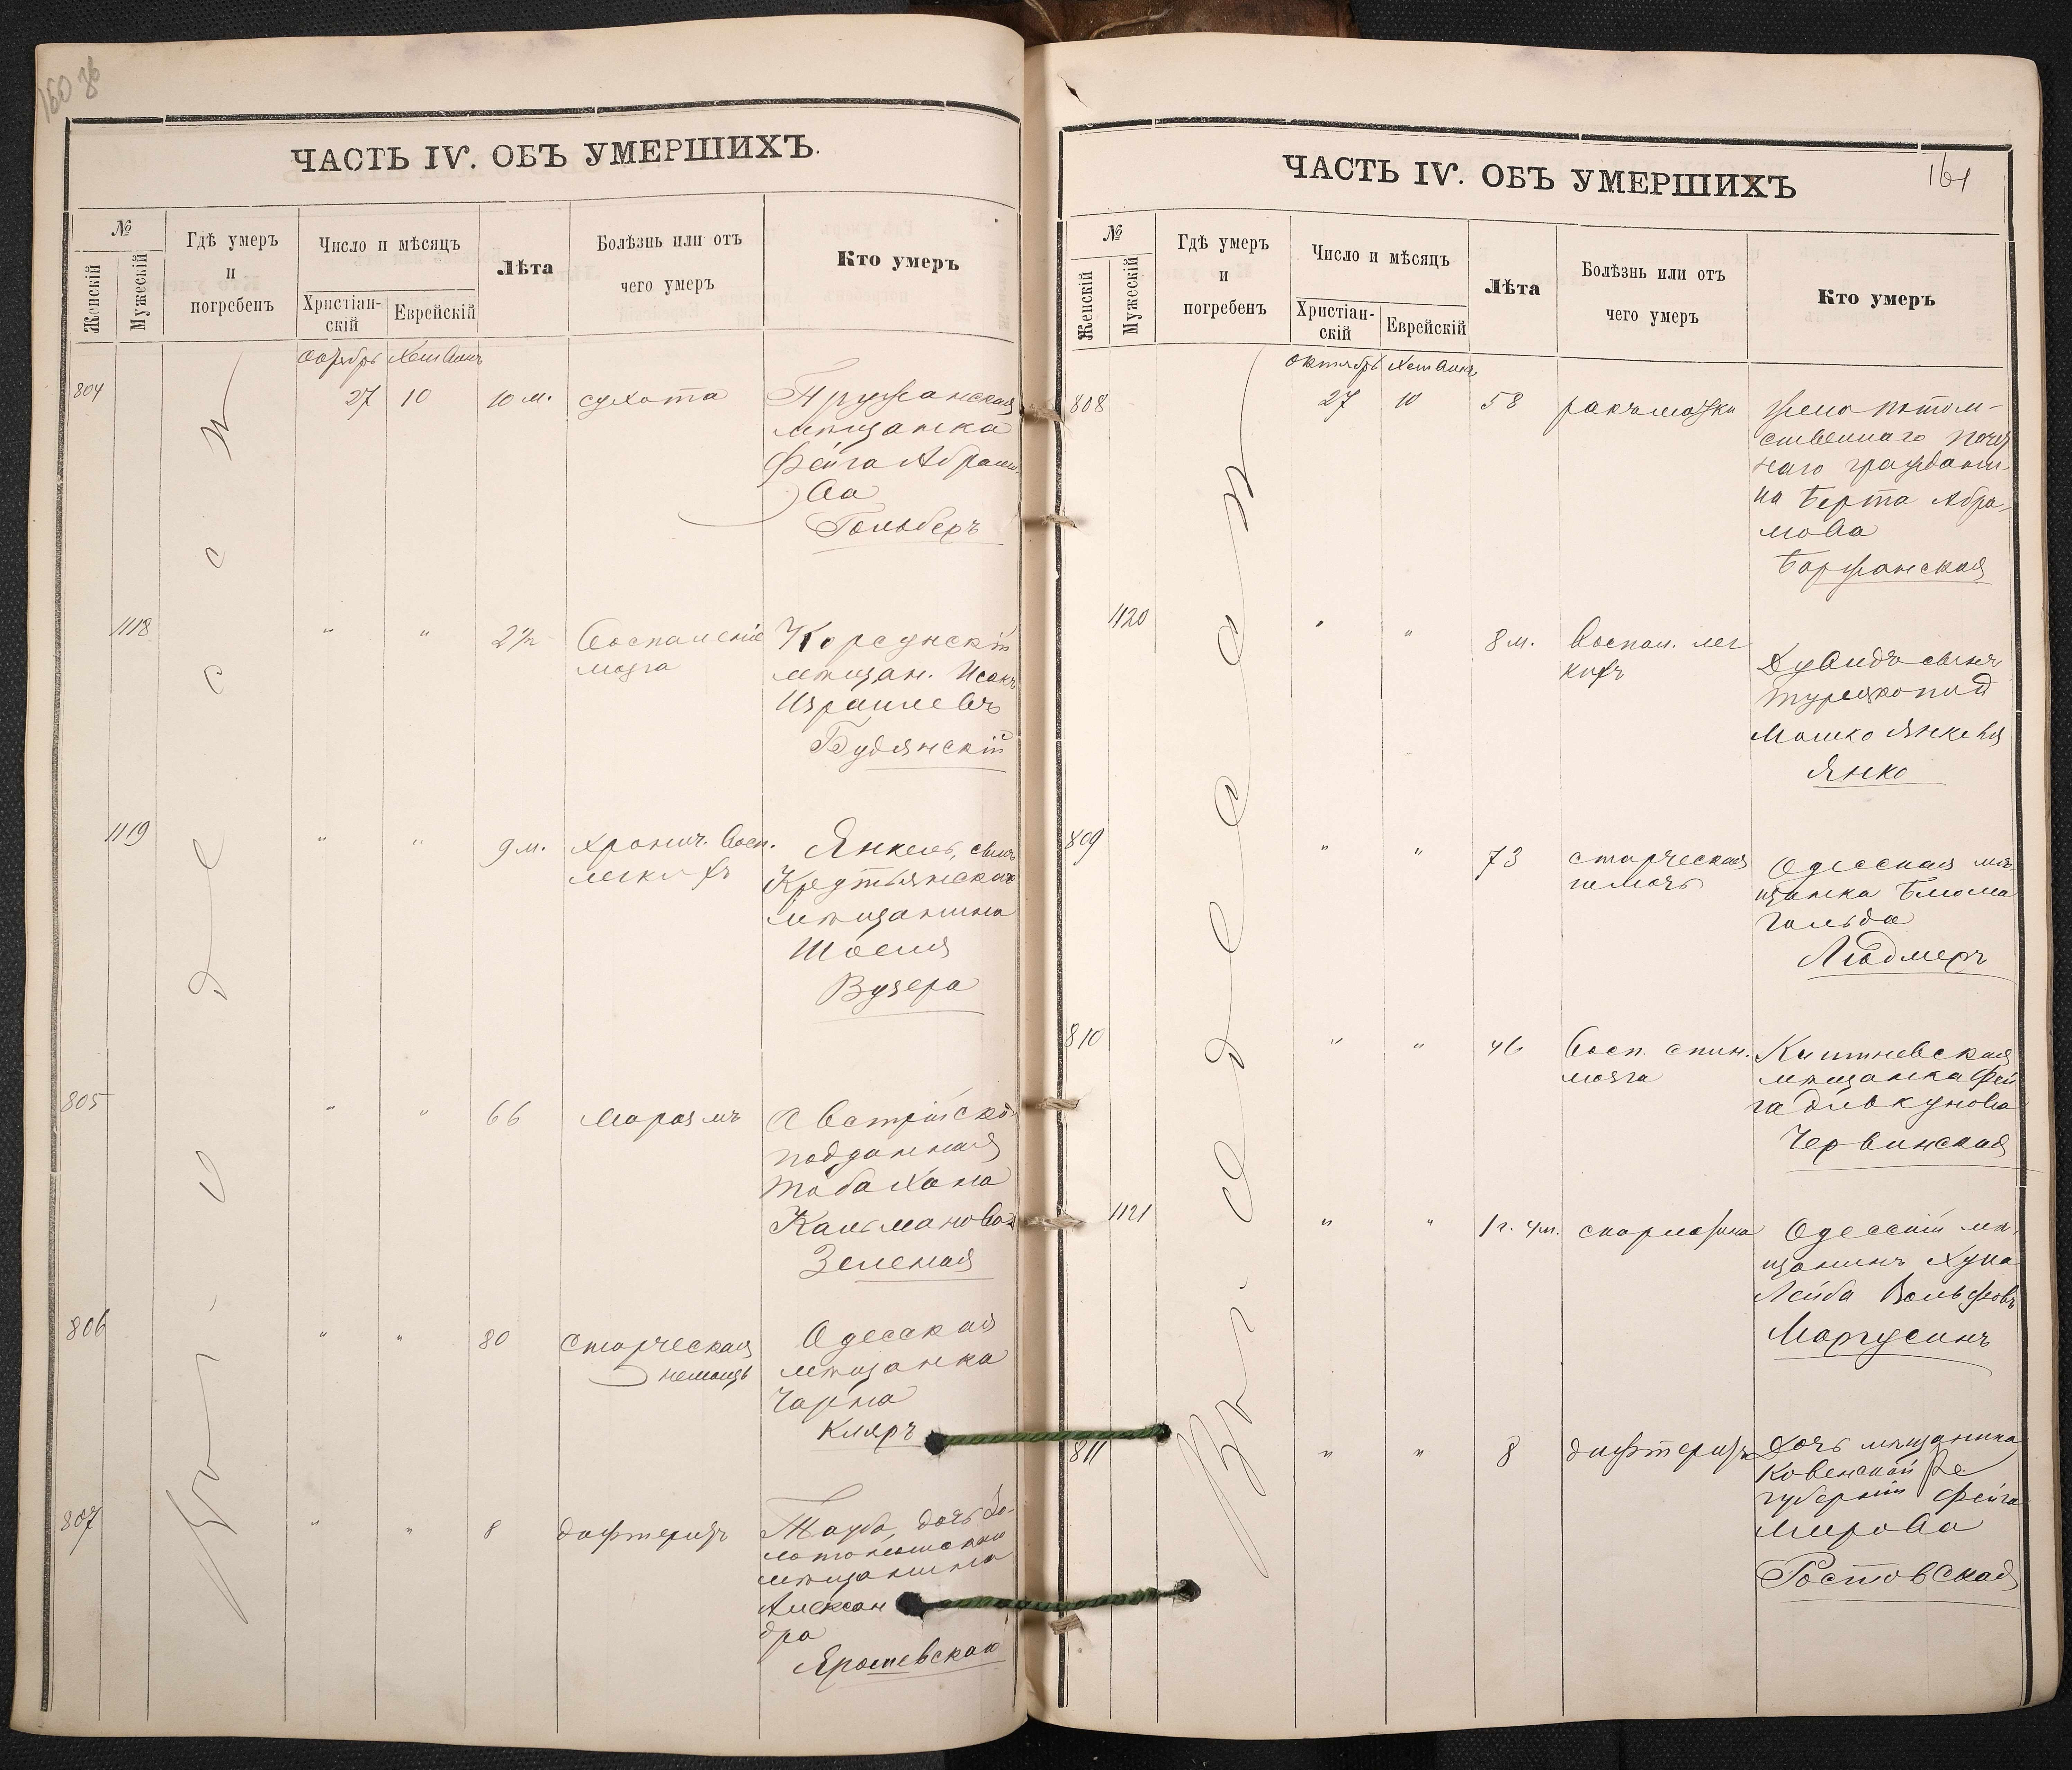 160 об
ЧАСТЬ IV. ОБЪ УМЕРШИХЪ.
№
Женскій
Мужескій
Гдѣ умеръ
и
погребенъ
Число и мѣсяцъ
Христіан-
скій
Еврейскій
Лѣта
Болѣзнь или отъ
чего умеръ
Кто умеръ
октябрь Хешванъ
Въ г. Одессѣ
804 27 10 10 м. сухота
Пружанская
мѣщанка
Фейга Абрамо
ва
Гольберъ
1118 " " 2½ воспаленіе
мозга
Корсунскій
мѣщан. Исакъ
Израилевъ
Будянскій
1119 " " 9 м. хронич. восп.
легкихъ
Янкель, сынъ
мѣщанина
Шоеля
Вузера
805 " " 66 маразмъ
Австрійско
подданная
Тоба Хана
Кальманова
Зеленая
806 " " 80 старческая
немощь
Одесская
мѣщанка
Чарна
Кляръ
807 " " 8 дифтеритъ
Тауба, дочь Зо-
лотоношскаго
мѣщанина
Алексан
дра
Ярошевская
161
ЧАСТЬ IV. ОБЪ УМЕРШИХЪ
№
Женскій
Мужескій
Гдѣ умеръ
и
погребенъ
Число и мѣсяцъ
Христіан-
скій
Еврейскій
Лѣта
Болѣзнь или отъ
чего умеръ
Кто умеръ
октябрь Хешванъ
Въ г. Одессѣ
808 27 10 58 ракъ матки
жена потом-
ственнаго почет
наго граждани-
на Берта Абра-
мова
Баржанская
1120 " " 8 м. воспал. лег
кихъ
Дувидъ сынъ
турецкопод
Мошко Янкеля
Янко
809 " " 73 старческая
немощь
Одесская мѣ
щанка Блюма
Гольда
Людмеръ
810 " " 46 восп. спин.
мозга
Кишиневская
мѣщанка Фей
га Дивкунова
Червинская
1121 " " 1 г. 4 м. скарлатина
Одесскій мѣ-
щанинъ Хуна
Лейба Вольфовъ
Маргусинъ
811 " " 8 дифтеритъ
Дочь мѣщанина
Ковенской
губерніи Фейга
Мирова
Ростовская